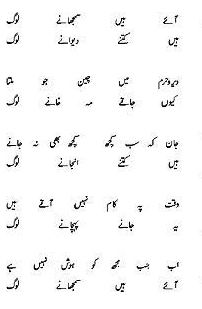 آئے ہیں سمجھانے لوگ
ہیں کتنے دیوانے لوگ
دیر و حرم میں چین جو ملتا
کیوں جاتے مے خانے لوگ
جان کے سب کچھ کچھ بھی نہ جانے
ہیں کتنے انجانے لوگ
وقت پہ کام نہیں آتے ہیں
یہ جانے پہچانے لوگ
اب جب مجھ کو ہوش نہیں ہے
آئے ہیں سمجھانے لوگ